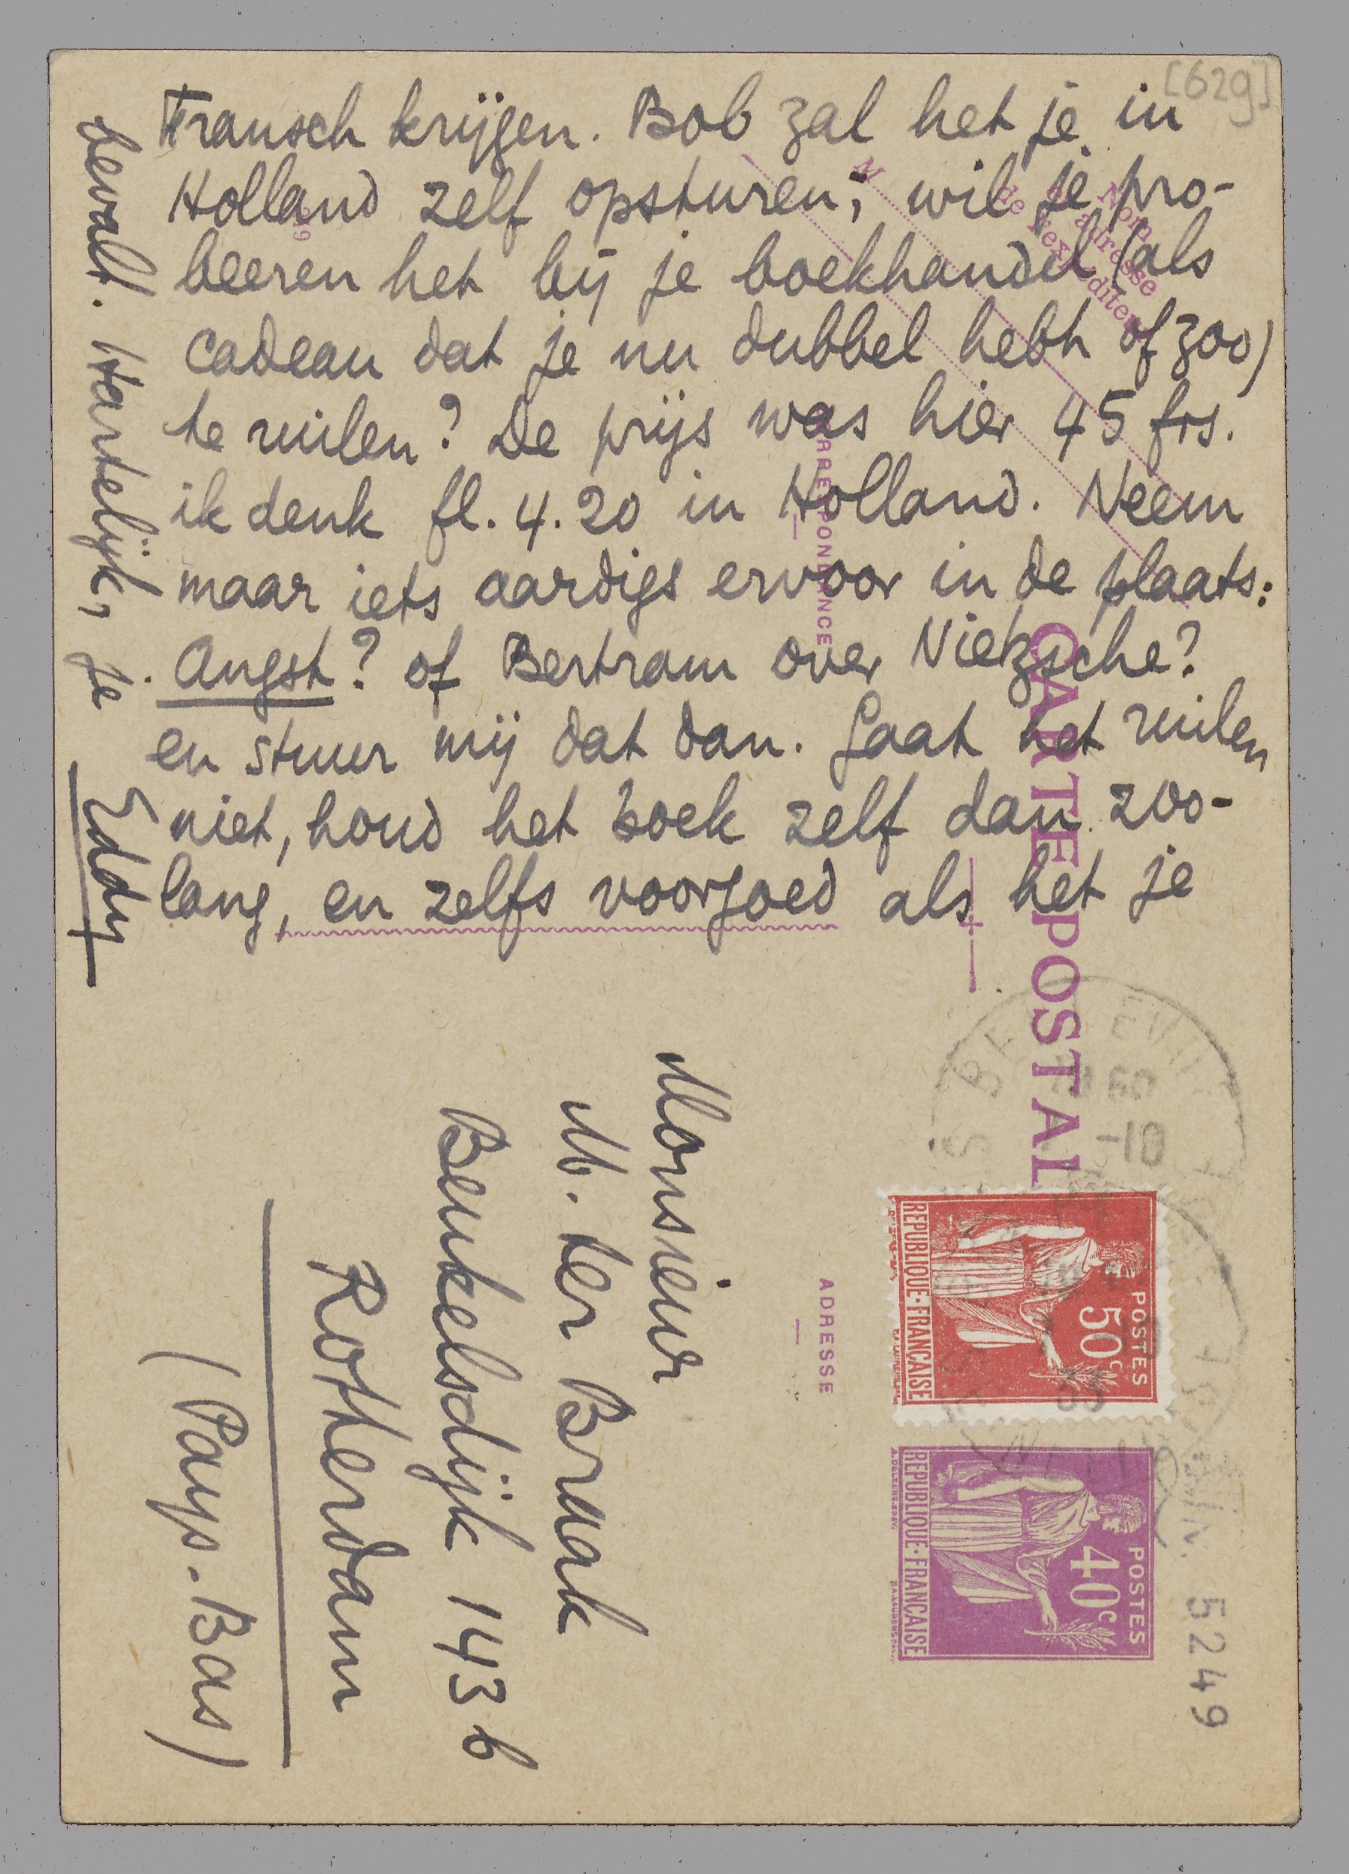 [629]
Fransch krijgen. Bob zal het je in
Holland zelf opsturen; wil je pro-
beeren het bij je boekhandel (als
cadeau dat je nu dubbel hebt of zoo)
te ruilen? De prijs was hier 45 frs.
ik denk fl. 4.20 in Holland. Neem
maar iets aardigs ervoor in de plaats:
Angst? of Bertram over Nietzsche?
en stuur mij dat dan. Gaat het ruilen
niet, houd het boek zelf dan zoo-
lang, en zelfs voorgoed als het je
bevalt. Hartelijk, je
Eddy
CARTE POSTALE
Nom
et adresse
de l'expéditeur
M
CORRESPONDANCE
ADRESSE
Monsieur
M. ter Braak
Beukelsdijk 143 b
Rotterdam
(Pays-Bas)
POSTES
50c
REPUBLIQUE·FRANÇAISE
POSTES
40c
REPUBLIQUE·FRANÇAISE
5249